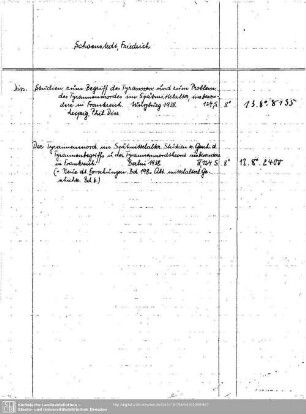 Schoenstedt, Friedrich
Diss. Studien zum Begriff des Tyrannen und zum Problem
des Tyrannenmordes im Spätmittelalter insbeson-
dere in Frankreich. Würzburg 1938. 124 S. 8° 13. 8°. 8155
Leipzig Phil Diss
Der Tyrannenmord im Spätmittelalter. Studien z. Gesch. d.
Tyrannenbegriffs u. der Tyrannenmordtheorie insbesondere
in Frankreich. Berlin 1938. 124 S. 8° 12. 8°. 2400
(= Neue dt. Forschungen. Bd 198. Abt. mittelalterl. Ge-
schichte Bd 6.)
Sächsische Landesbibliothek -
Staats- und Universitätsbibliothek Dresden